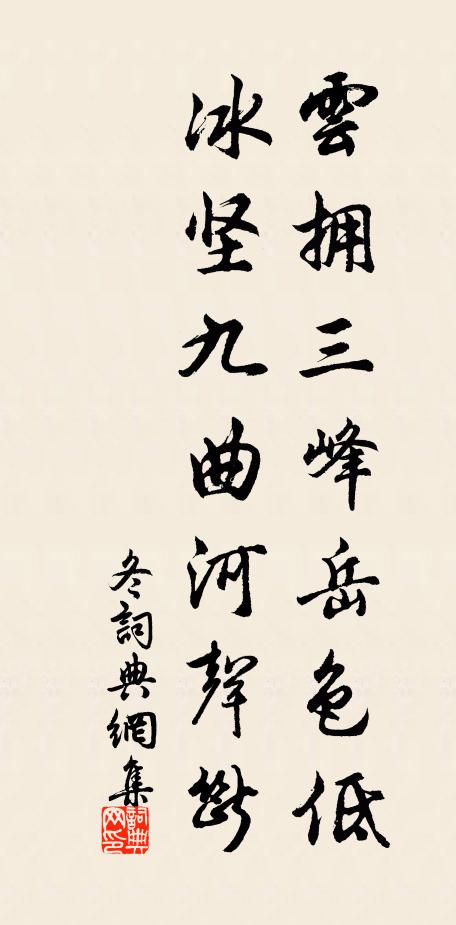 雲拥三峰岳色低
冰坚九曲河聲斷
冬詞典網集
詞典网印